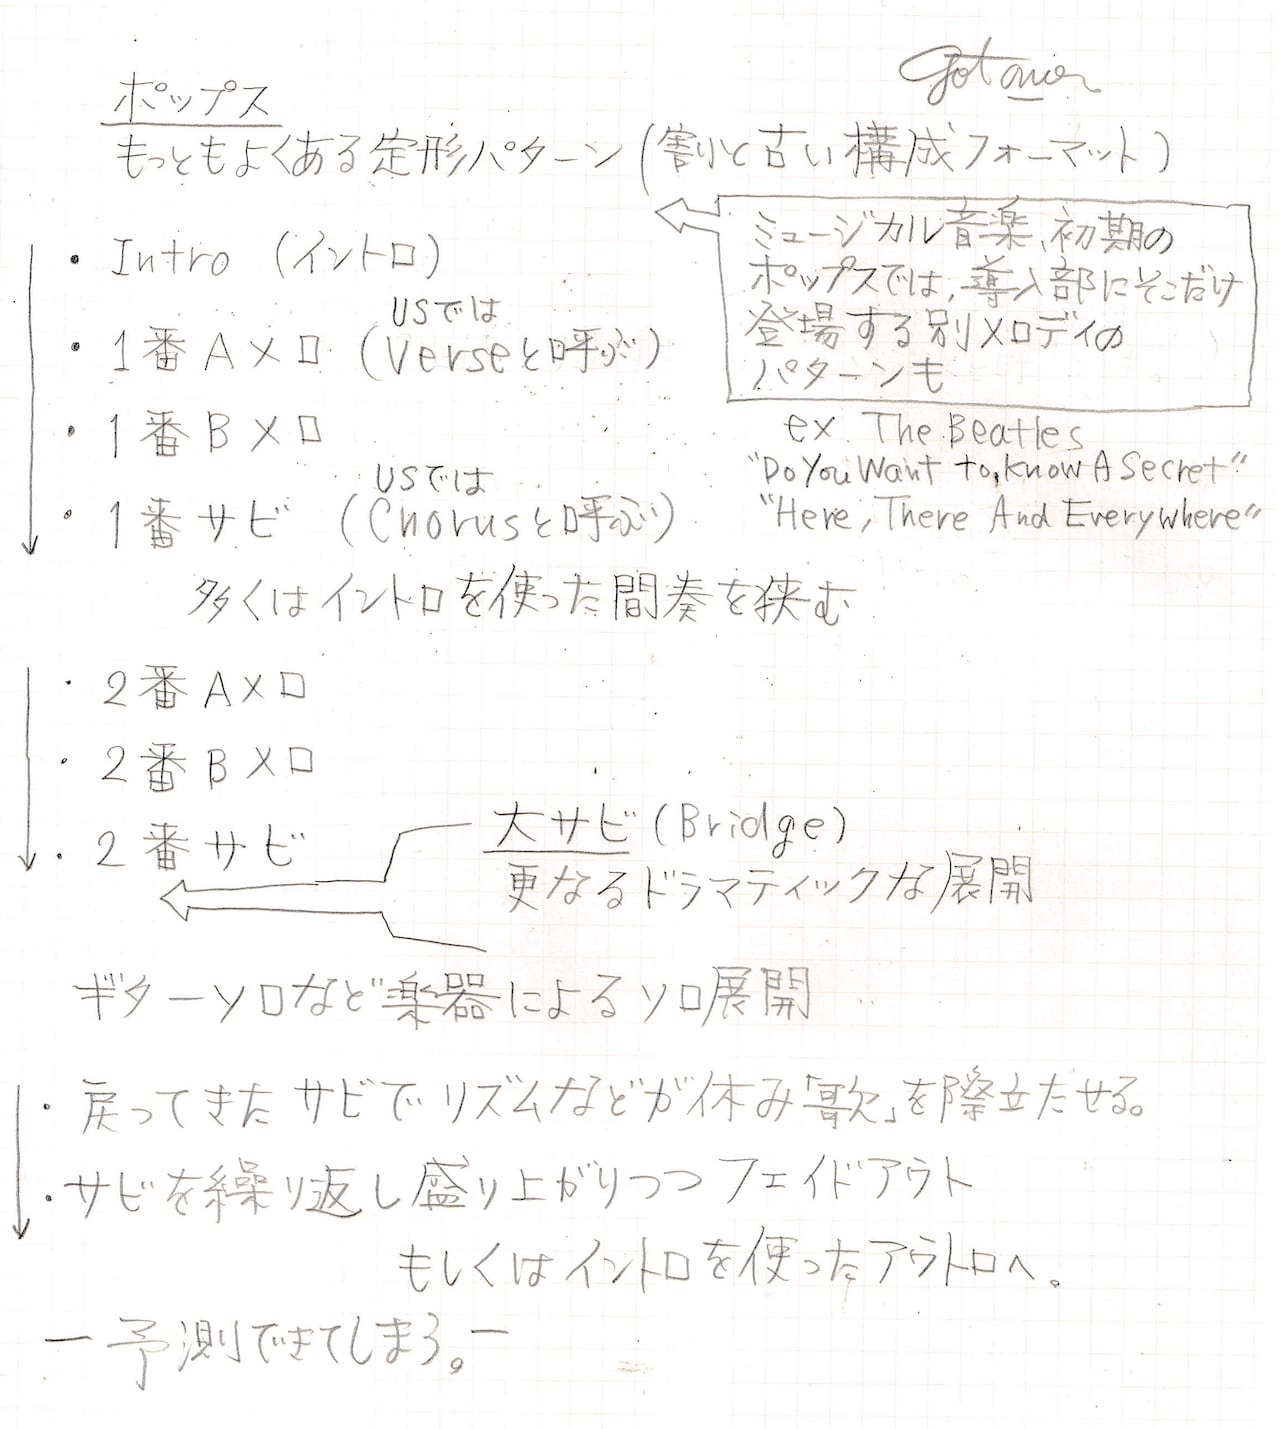 ポップス
もっともよくある定形パターン(割りと古い構成フォーマット)
ミュージカル音楽、初期の
ポップスでは、導入部にそこだけ
登場する別メロディの
パターンも
ex. The Beatles
"Do You Want to Know A Secret"
"Here, There And Everywhere"
・Intro (イントロ)
USでは
・1番Aメロ (Verseと呼ぶ)
・1番Bメロ
USでは
・1番サビ (Chorusと呼ぶ)
多くはイントロを使った間奏を狭む
・2番Aメロ
・2番Bメロ
・2番サビ
大サビ(Bridge)
更なるドラマティックな展開
ギターソロなど楽器によるソロ展開
・戻ってきたサビでリズムなどが休み「歌」を際立たせる。
・サビを繰り返し盛り上がりつつフェイドアウト
もしくはイントロを使ったアウトロへ。
ー予測できてしまう。ー